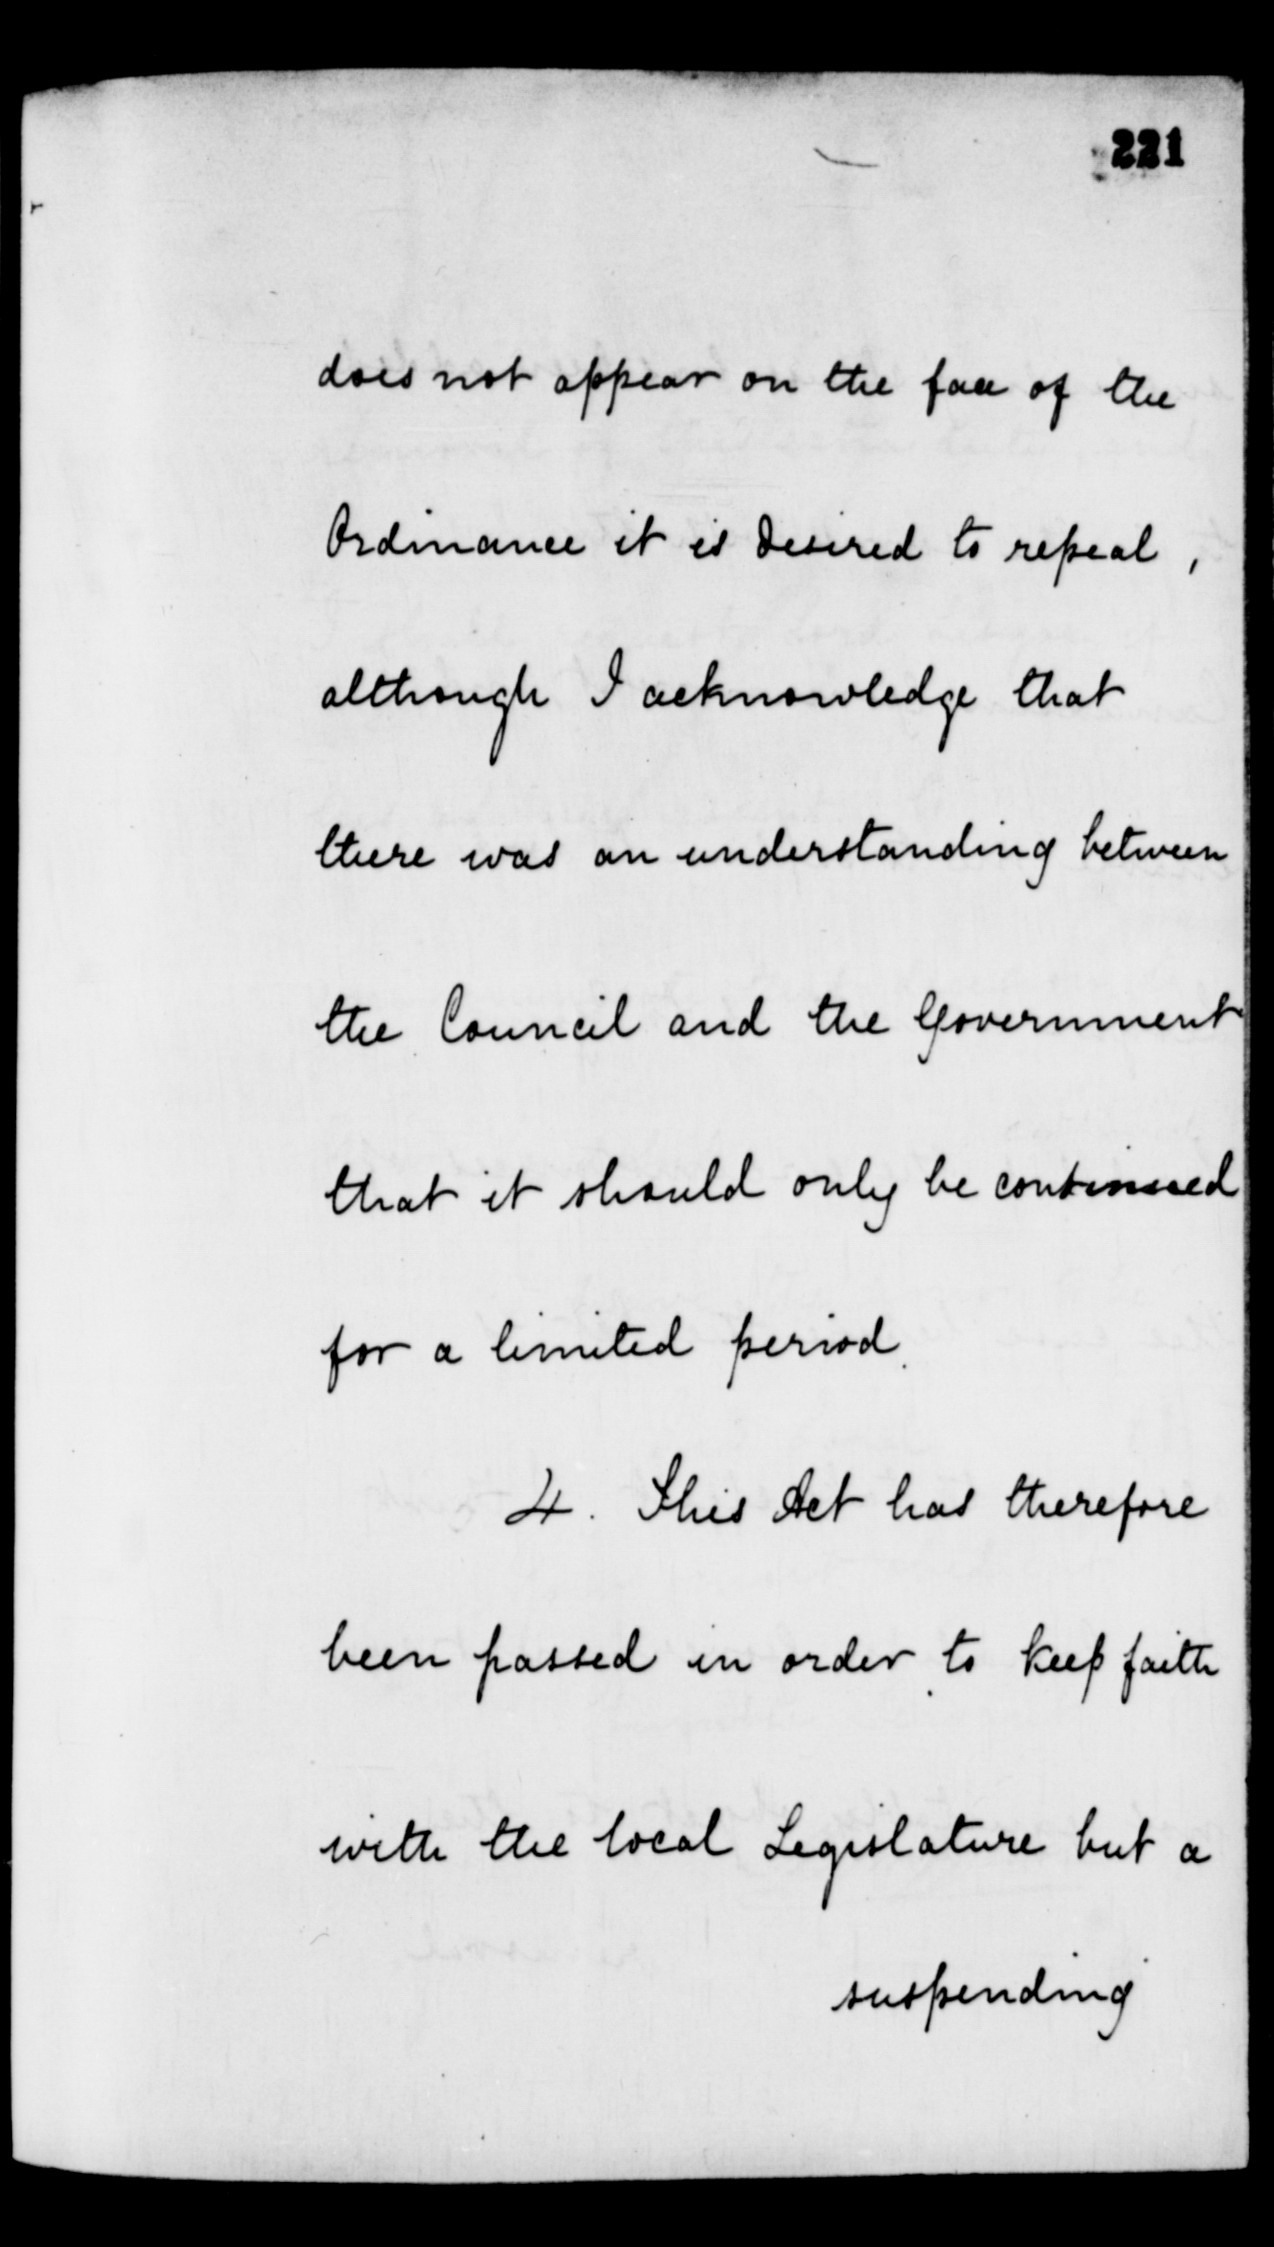 221
does not appear on the face of the
Ordinance it is desired to repeal,
although I acknowledge that
there was an understanding between
the Council and the Government
that it should only be continued
for a limited period.
4. This Act has therefore
been passed in order to keep faith
with the local Legislature but a
suspending